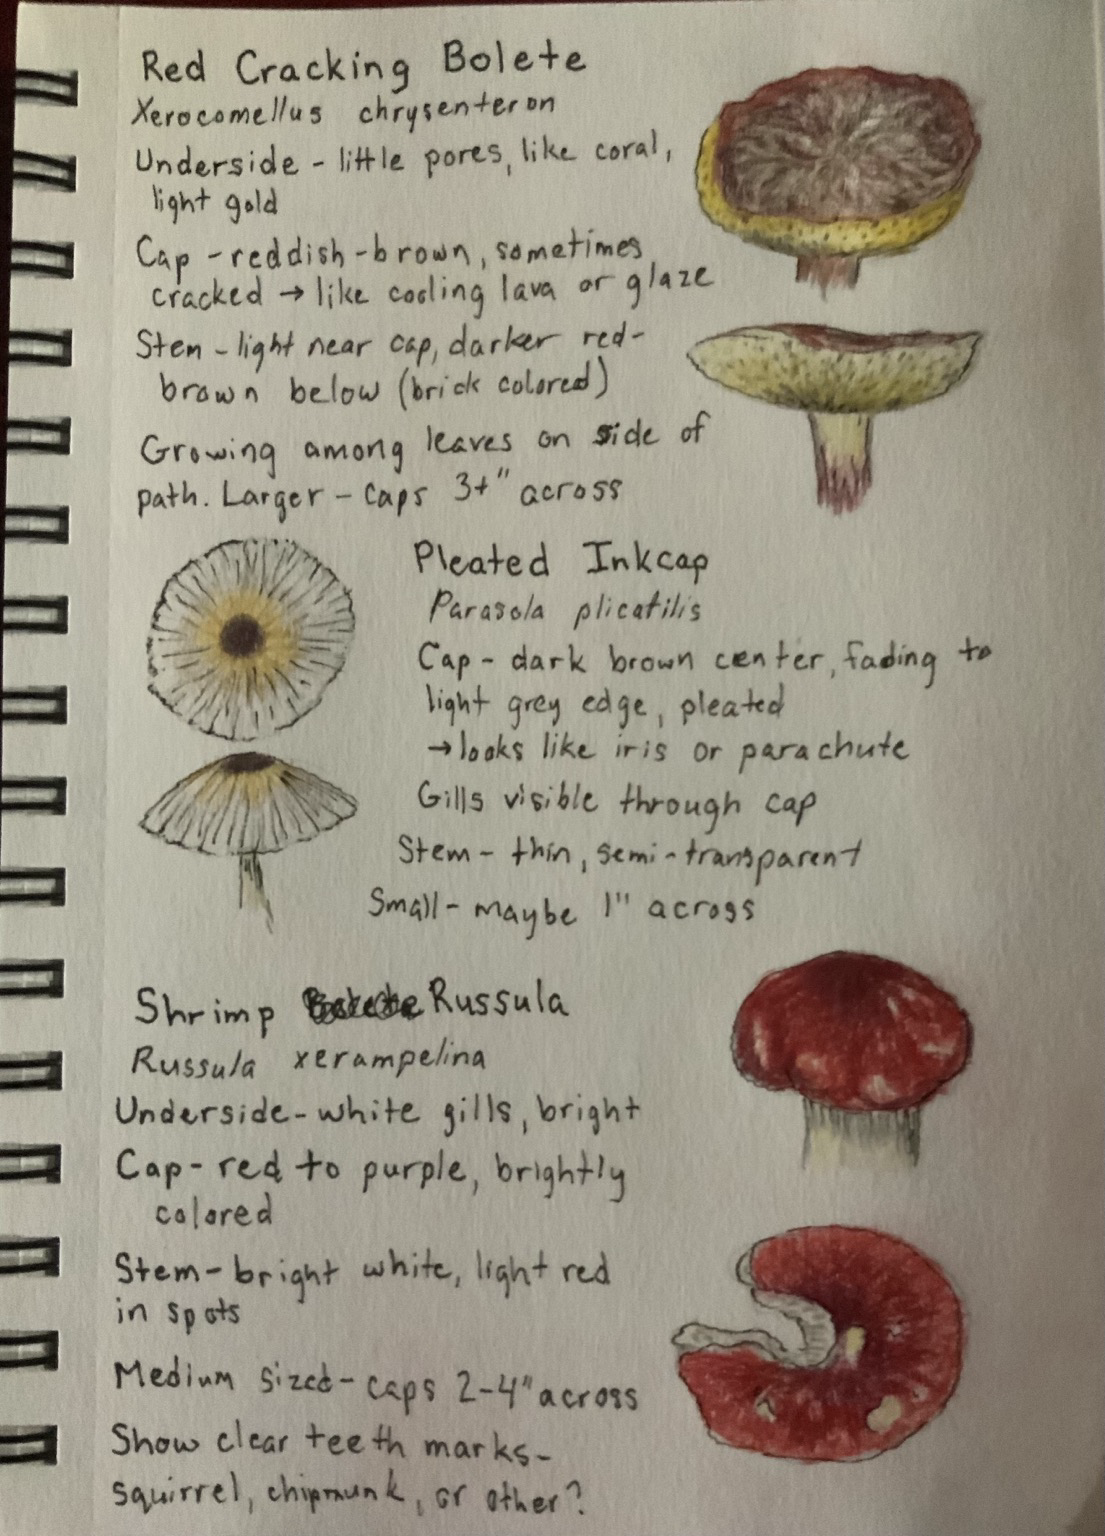 Red Cracking Bolete
Xerocomellus chrysenteron
Underside - little pores, like coral,
light gold
Cap - reddish-brown, sometimes
cracked → like cooling lava or glaze
Stem - light near cap, darker red-
brown below (brick colored)
Growing among leaves on side of
path. Larger - caps 3+" across
Pleated Inkcap
Parasola plicatilis
Cap - dark brown center, fading to
light grey edge, pleated
→ looks like iris or parachute
Gills visible through cap
Stem - thin, semi-transparent
Small - maybe 1" across
Shrimp Russula
Russula xerampelina
Underside - white gills, bright
Cap - red to purple, brightly
colored
Stem - bright white, light red
in spots
Medium sized - caps 2-4" across
Show clear teeth marks -
squirrel, chipmunk, or other?